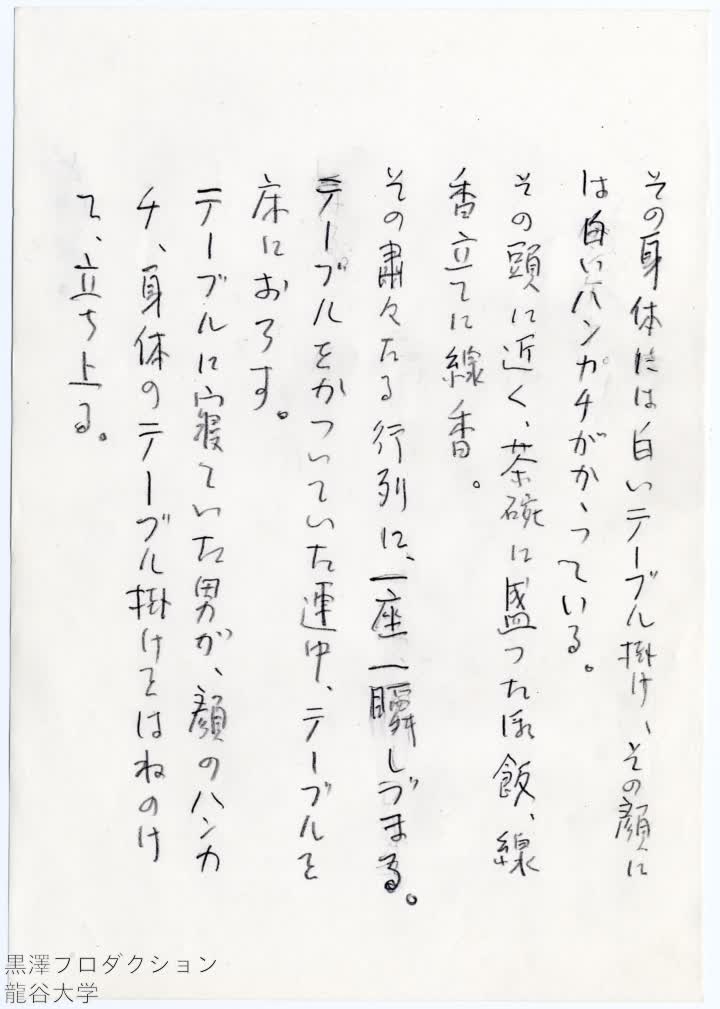 その身体には白いテーブル掛け、その顔に
は白いハンカチがかゝっている。
その頭に近く、茶碗に盛った御飯、線
香立てに線香。
その粛々たる行列に、一座一瞬しづまる。
テーブルをかついでいた連中、テーブルを
床におろす。
テーブルに寝ていた男が、顔のハンカ
チ、身体のテーブル掛けをはねのけ
て、立ち上る。
黒澤プロダクション
龍谷大学